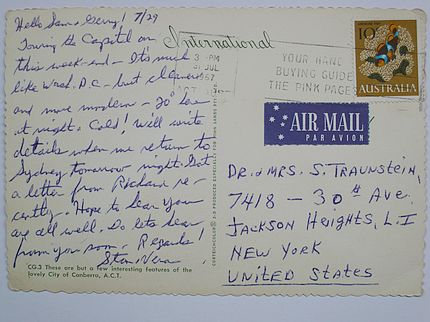 Hello Sam & Gerry! 7/29
Touring the Capitol on
this week-end — It's much
like Wash. D.C. — but cleaner
and more modern — 20 low
at night. Cold! We'll write
details when we return to
Sydney tomorrow night. Got
a letter from Richard re-
cently. Hope to hear you
are all well. Do lets hear
from you soon. Regards!
Stan & Vera
CG.3 These are but a few interesting features of the
lovely City of Canberra, A.C.T.
International
3 - PM
31 JUL
1967
YOUR HAND
BUYING GUIDE
THE PINK PAGES
10c
AUSTRALIA
AIR MAIL
PAR AVION
DR. & MRS. S. TRAUNSTEIN,
7418 — 30th Ave.
JACKSON HEIGHTS, L.I
NEW YORK
UNITED STATES